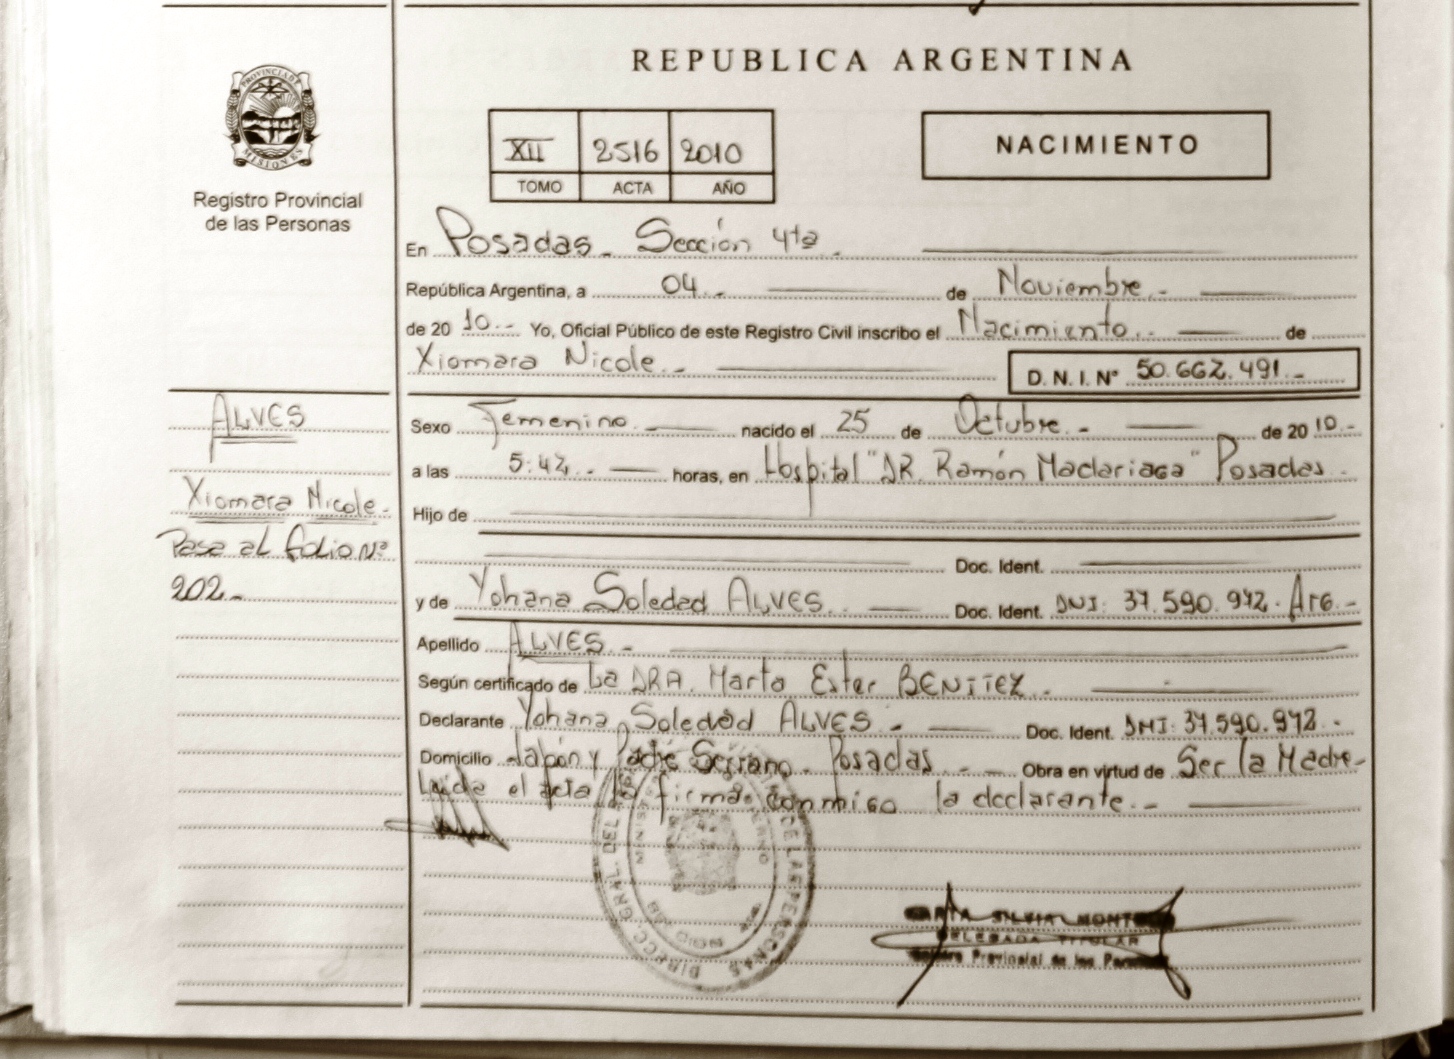 REPUBLICA ARGENTINA
PROVINCIA DE MISIONES
Registro Provincial
de las Personas
XII 2516 2010
TOMO ACTA AÑO
NACIMIENTO
En Posadas - Sección 4ta -
República Argentina, a 04 - de Noviembre -
de 20 10 - Yo, Oficial Público de este Registro Civil inscribo el Nacimiento - de
Xiomara Nicole - D. N. I. Nº 50.662.491 -
ALVES
Xiomara Nicole -
Pasa al folio Nº
202 -
Sexo Femenino nacido el 25 de Octubre - de 20 10 -
a las 5:42 - horas, en Hospital "DR. Ramón Madariaga" Posadas -
Hijo de
Doc. Ident.
y de Yohana Soledad ALVES Doc. Ident. DNI: 37.590.972 - Arg -
Apellido ALVES -
Según certificado de La DRA. Marta Ester BENITEZ -
Declarante Yohana Soledad ALVES - Doc. Ident. DNI: 37.590.972 -
Domicilio Japón y Padre Serrano - Posadas - Obra en virtud de Ser la Madre -
Leída el acta la firma conmigo la declarante -
DIRECC. GRAL. DEL DE LAS PERSONAS
SILVIA
DELEGADA TITULAR
Provincial de las Personas